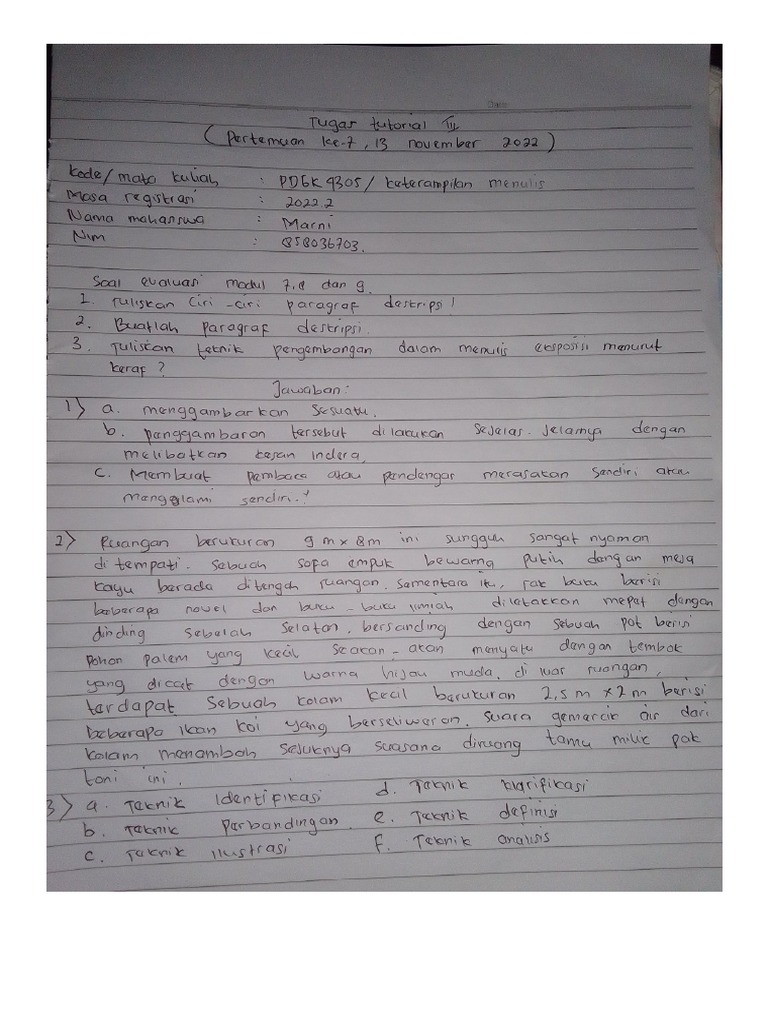 Date:
Tugas tutorial III
( Pertemuan ke-7, 13 november 2022 )
Kode/ mata kuliah : PDGK 4305/ keterampilan menulis
Masa registrasi : 2022.2
Nama mahasiswa : Marni
Nim : 858036703.
Soal evaluasi modul 7,8 dan 9.
1. Tuliskan Ciri -ciri paragraf deskripsi!
2. Buatlah paragraf deskripsi.
3. Tuliskan teknik pengembangan dalam menulis eksposisi menurut
keraf ?
Jawaban :
1) a. menggambarkan sesuatu.
b. penggambaran tersebut dilakukan sejelas-jelasnya dengan
melibatkan kesan indera.
c. Membuat pembaca atau pendengar merasakan sendiri atau
mengalami sendiri.
2) Ruangan berukuran 9 m x 8m ini sungguh sangat nyaman
di tempati. sebuah sofa empuk bewarna putih dengan meja
kayu berada ditengah ruangan. sementara itu, rak buku berisi
beberapa novel dan buku-buku ilmiah diletakkan mepet dengan
dinding sebelah selatan, bersanding dengan sebuah pot berisi
pohon palem yang kecil seakan-akan menyatu dengan tembok
yang dicat dengan warna hijau muda. di luar ruangan,
terdapat sebuah kolam kecil berukuran 2,5 m x 2 m berisi
beberapa ikan koi yang berseliweran. suara gemercik air dari
kolam menambah sejuknya suasana diruang tamu milik pak
toni ini.
3) a. Teknik Identifikasi d. Teknik klasifikasi
b. Teknik perbandingan e. Teknik definisi
c. Teknik ilustrasi f. Teknik analisis